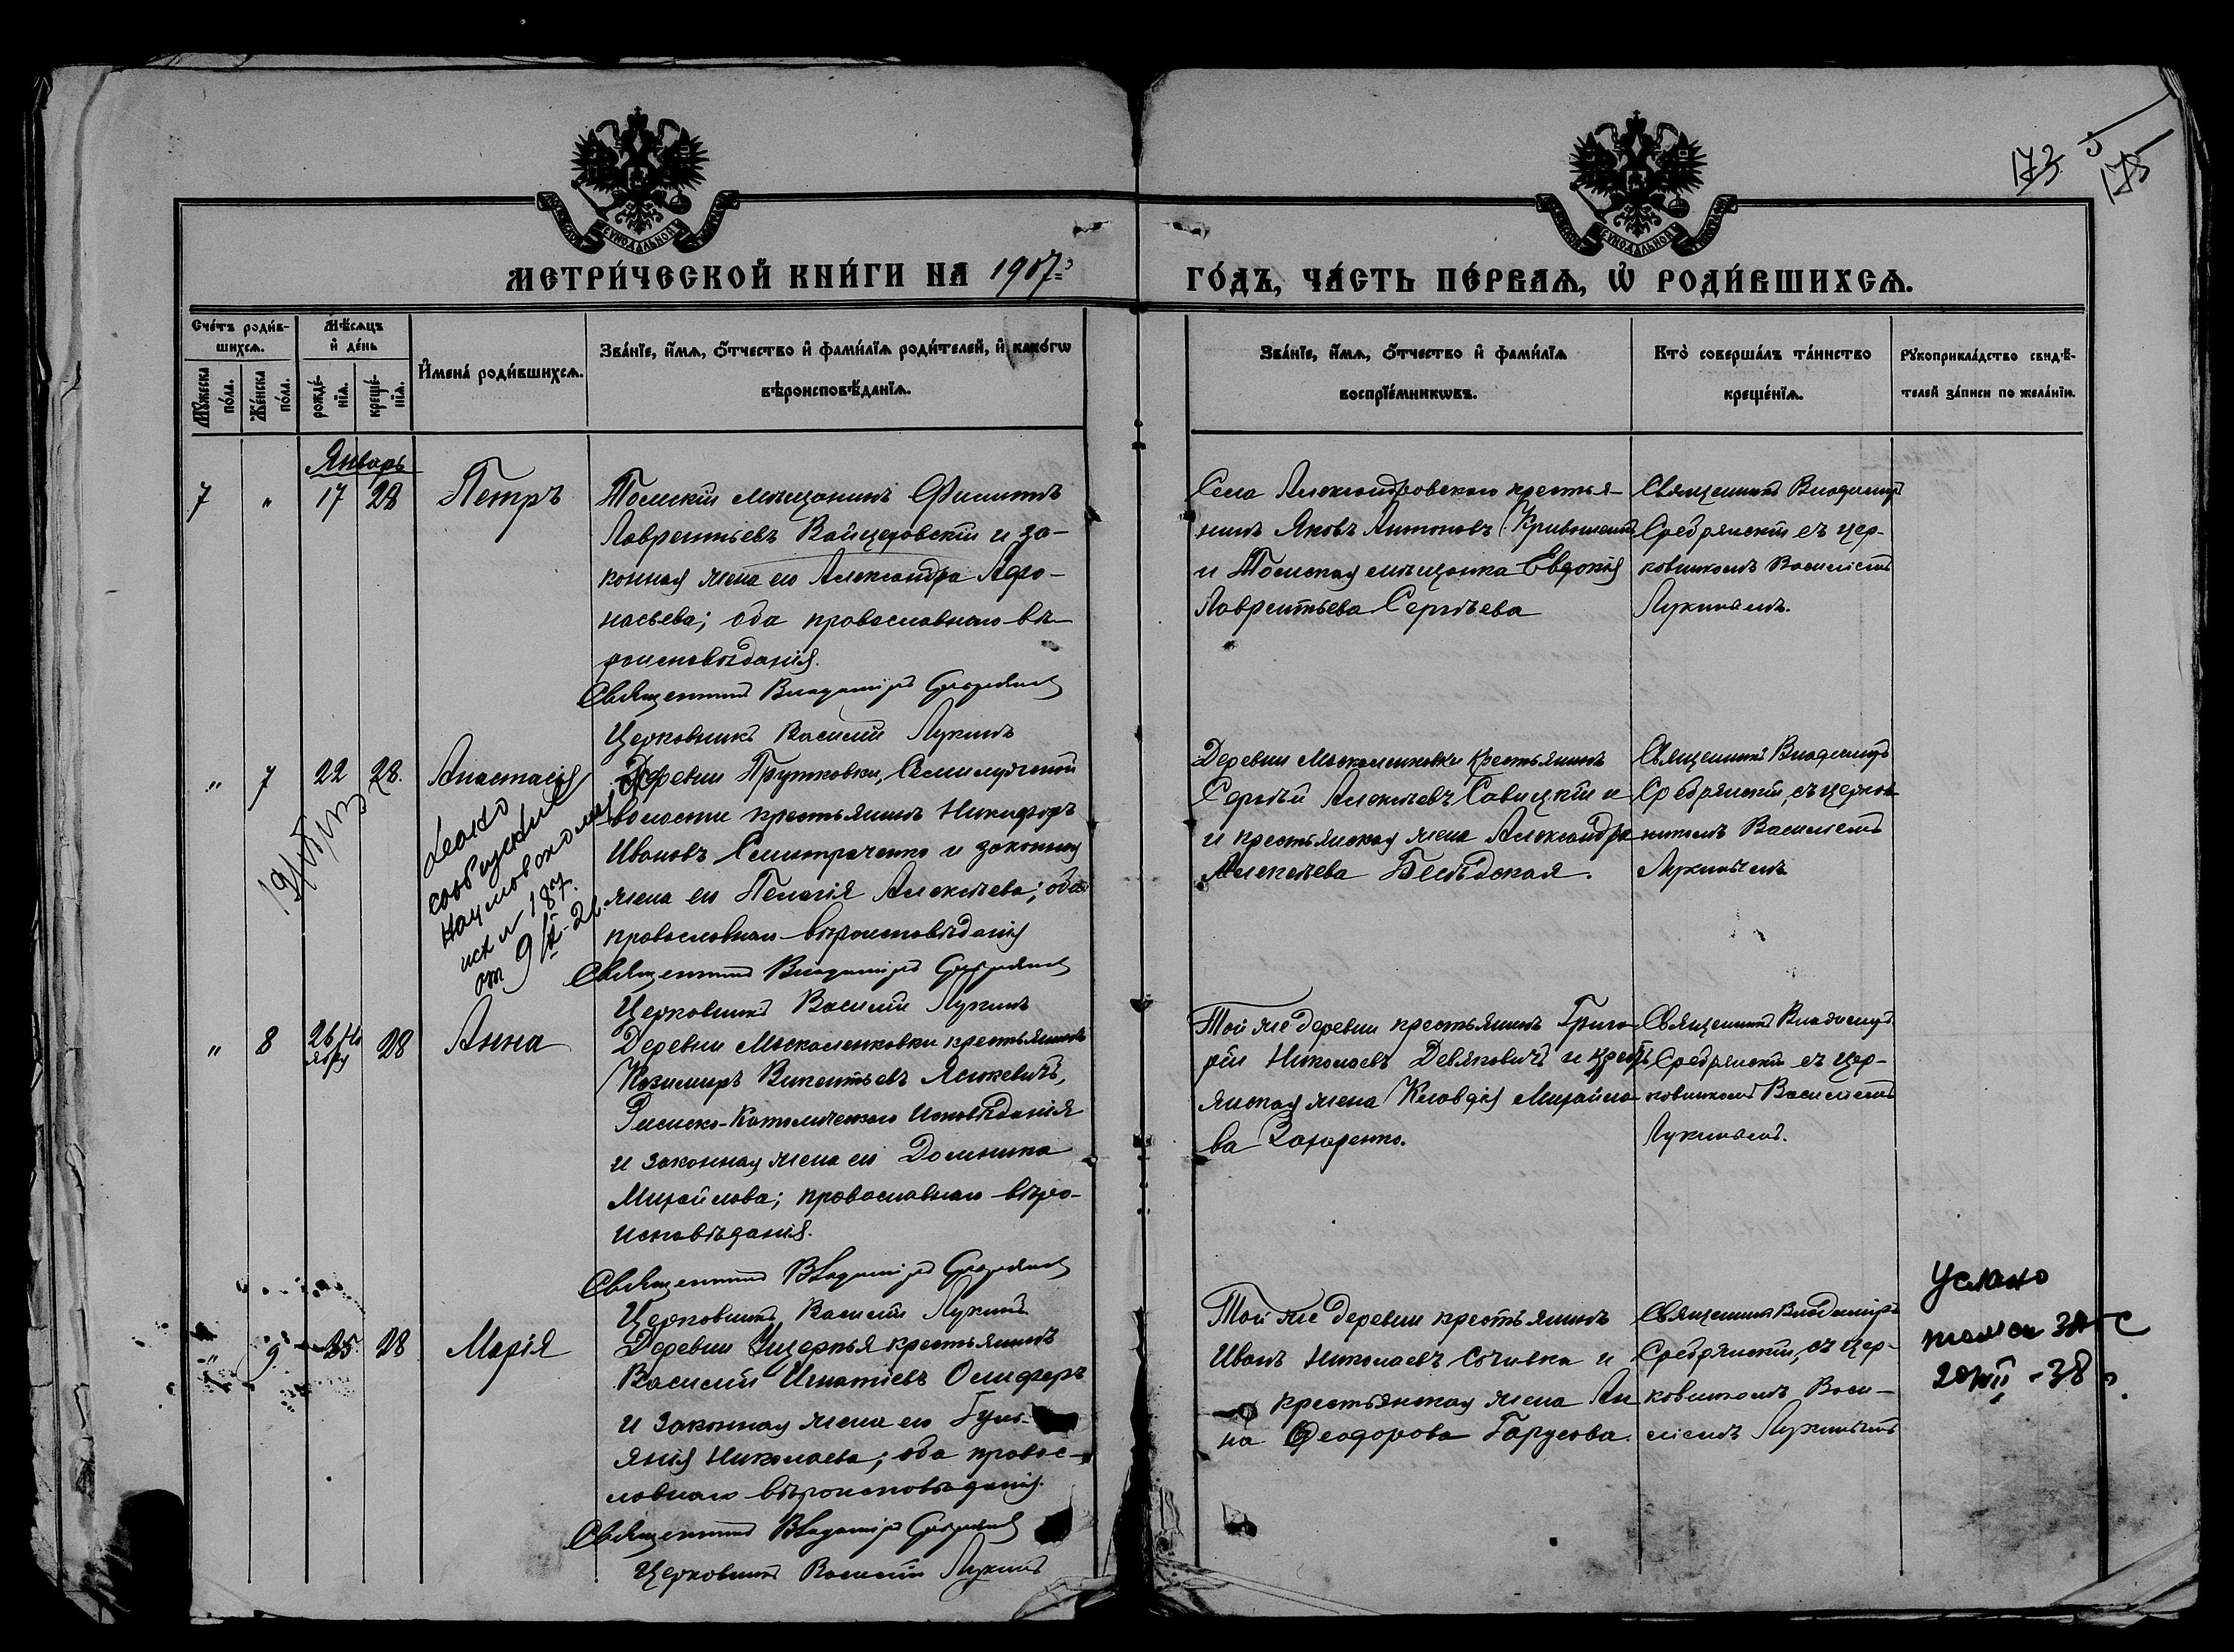 173
5
175
МЕТРИ́ЧЕСКОЙ КНИ́ГИ НА 1907
ГО́ДЪ, ЧА́СТЬ ПЕ́РВАѦ, Ѡ҆ РОДИ́ВШИХСѦ.
Сче́тъ роди́в-
шихсѧ.
Мѣ́сѧцъ
и҆ де́нь
И҆мена̀ роди́вшихсѧ.
Зва́нїе, и҆́мѧ, ѻ҆́тчество и҆ фами́лїѧ роди́телей, и҆ како́гѡ
вѣроисповѣ́данїѧ.
Мꙋ́жеска
по́ла.
Же́нска
по́ла.
рожде́-
нїѧ.
креще́-
нїѧ.
Зва́нїе, и҆́мѧ, ѻ҆́тчество и҆ фами́лїѧ
воспрїе́мникѡвъ.
Кто̀ соверша́лъ та́инство
креще́нїѧ.
Рꙋкоприкла́дство свидѣ́-
телей за́писи по жела́нїю.
Январь
7 " 17 28 Петръ
Томскій мѣщанинъ Филиппъ
Лаврентьевъ Войцеховскій и за-
конная жена его Александра Афо-
насьева; оба православнаго вѣ-
роисповѣданія.
Священникъ Владиміръ Сребрянскій
Церковникъ Василій Лукинъ
Села Александровскаго крестья-
нинъ Яковъ Антоновъ Кривошеинъ
и Томская мѣщанка Евдокія
Лаврентьева Сергѣева
Священникъ Владиміръ
Сребрянскій съ цер-
ковникомъ Василіемъ
Лукинымъ.
" 7 22 28. Анастасія
сообщение
исх N 187.
от 9
Деревни Прутковки, Семилужной
волости крестьянинъ Никифоръ
Ивановъ и законная
жена его Пелагія Алексѣева; оба
православнаго вѣроисповѣданія
Священникъ Владиміръ Сребрянскій
Церковникъ Василій Лукинъ
Деревни Москаленковки крестьянинъ
Сергѣй Алексѣевъ Савицкій и
и крестьянская жена Александра
Алексѣева Бесѣдская.
Священникъ Владиміръ
Сребрянскій, съ церков
никомъ Василіемъ
Лукинымъ
" 8 26 28 Анна
Деревни Москаленковки крестьянинъ
Казимиръ Викентьевъ Яцкевичъ,
Римско-Католическаго Исповѣданія
и законная жена его Доминика
Михайлова; православнаго вѣро-
исповѣданія.
Священникъ Владиміръ Сребрянскій
Церковникъ Василій Лукинъ
Той же деревни крестьянинъ Григо-
рій Николаевъ Девяковичъ и крест
янская жена Клавдія Михайло-
ва Захаренко.
Священникъ Владиміръ
Сребрянскій съ цер-
ковникомъ Василіемъ
Лукинымъ.
" 9 25 28 Марія
Деревни Ущерпья крестьянинъ
Василій Игнатіевъ Олиферъ
и законная жена его Гуль-
янія Николаева; оба правос-
лавнаго вѣроисповѣданія.
Священникъ Владиміръ Сребрянскій
Церковникъ Василій Лукинъ
Той же деревни крестьянинъ
Иванъ Николаевъ Сочивка и
крестьянская жена Ан
на Ѳеодорова Гарусова.
Священникъ Владиміръ
Сребрянскій, съ цер-
ковникомъ Васи-
ліемъ Лукинымъ
Услано